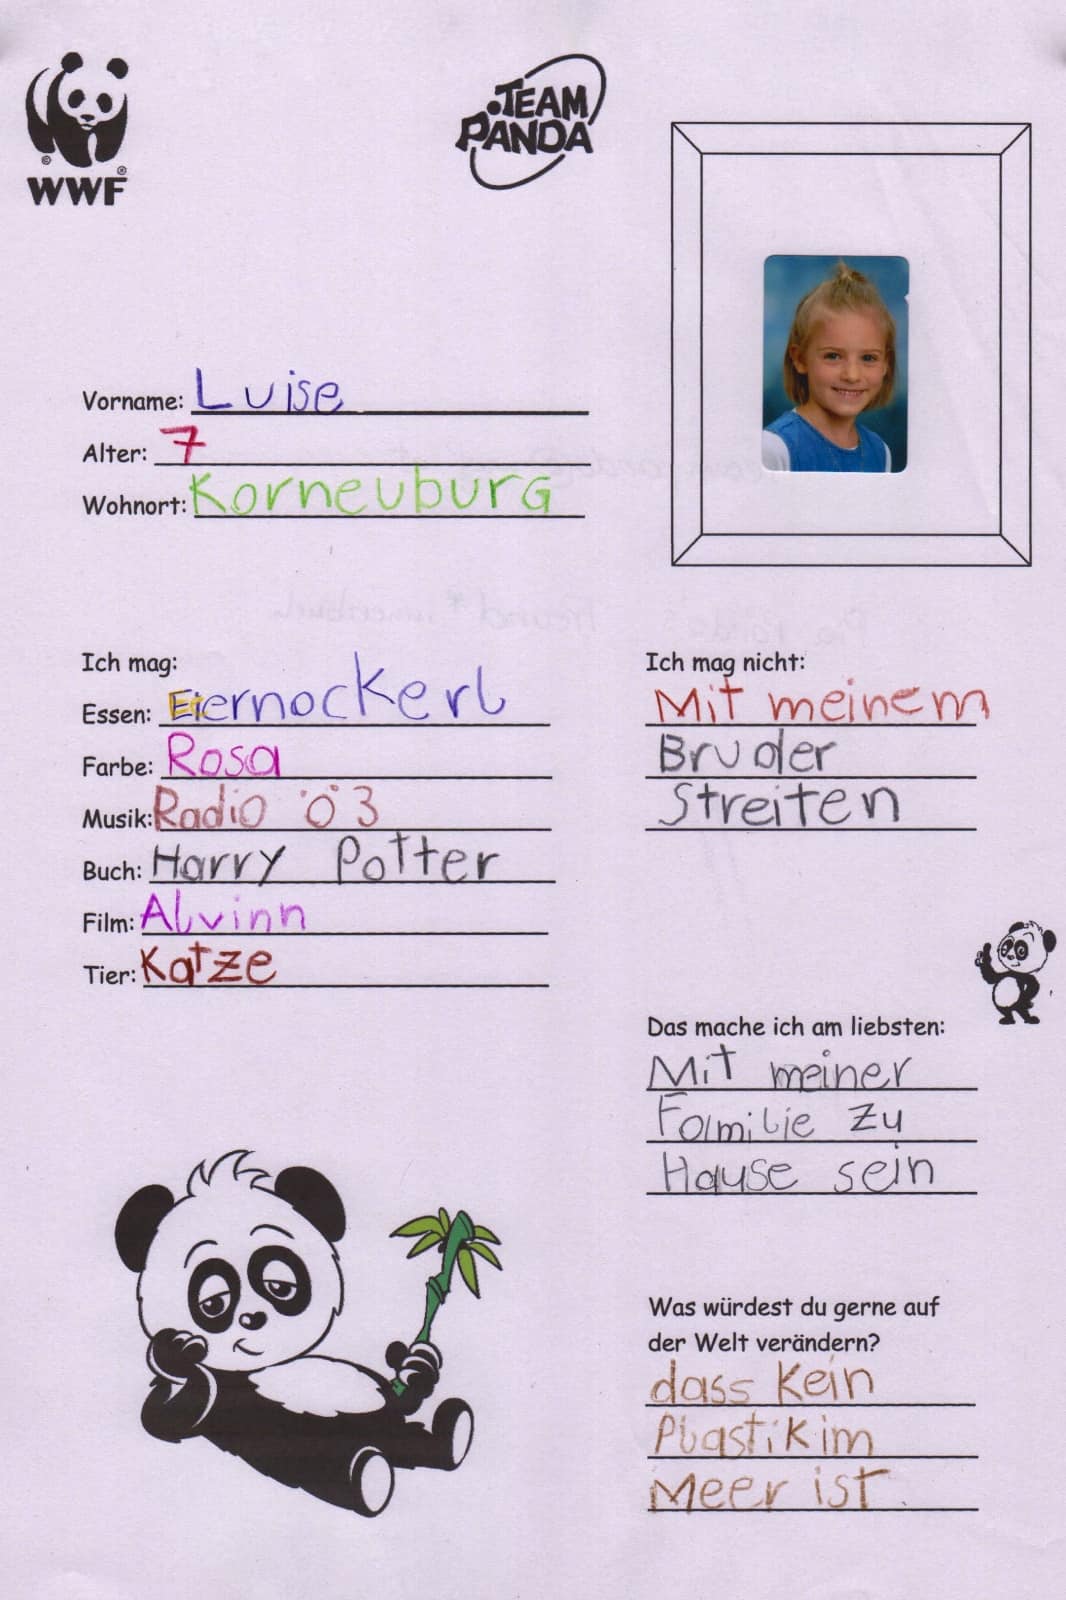 WWF
TEAM
PANDA
Vorname: Luise
Alter: 7
Wohnort: Korneuburg
Ich mag:
Essen: Eiernockerl
Farbe: Rosa
Musik: Radio Ö3
Buch: Harry Potter
Film: Alvinn
Tier: Katze
Ich mag nicht:
Mit meinem
Bruder
Streiten
Das mache ich am liebsten:
Mit meiner
Familie zu
Hause sein
Was würdest du gerne auf
der Welt verändern?
dass kein
Plastik im
Meer ist